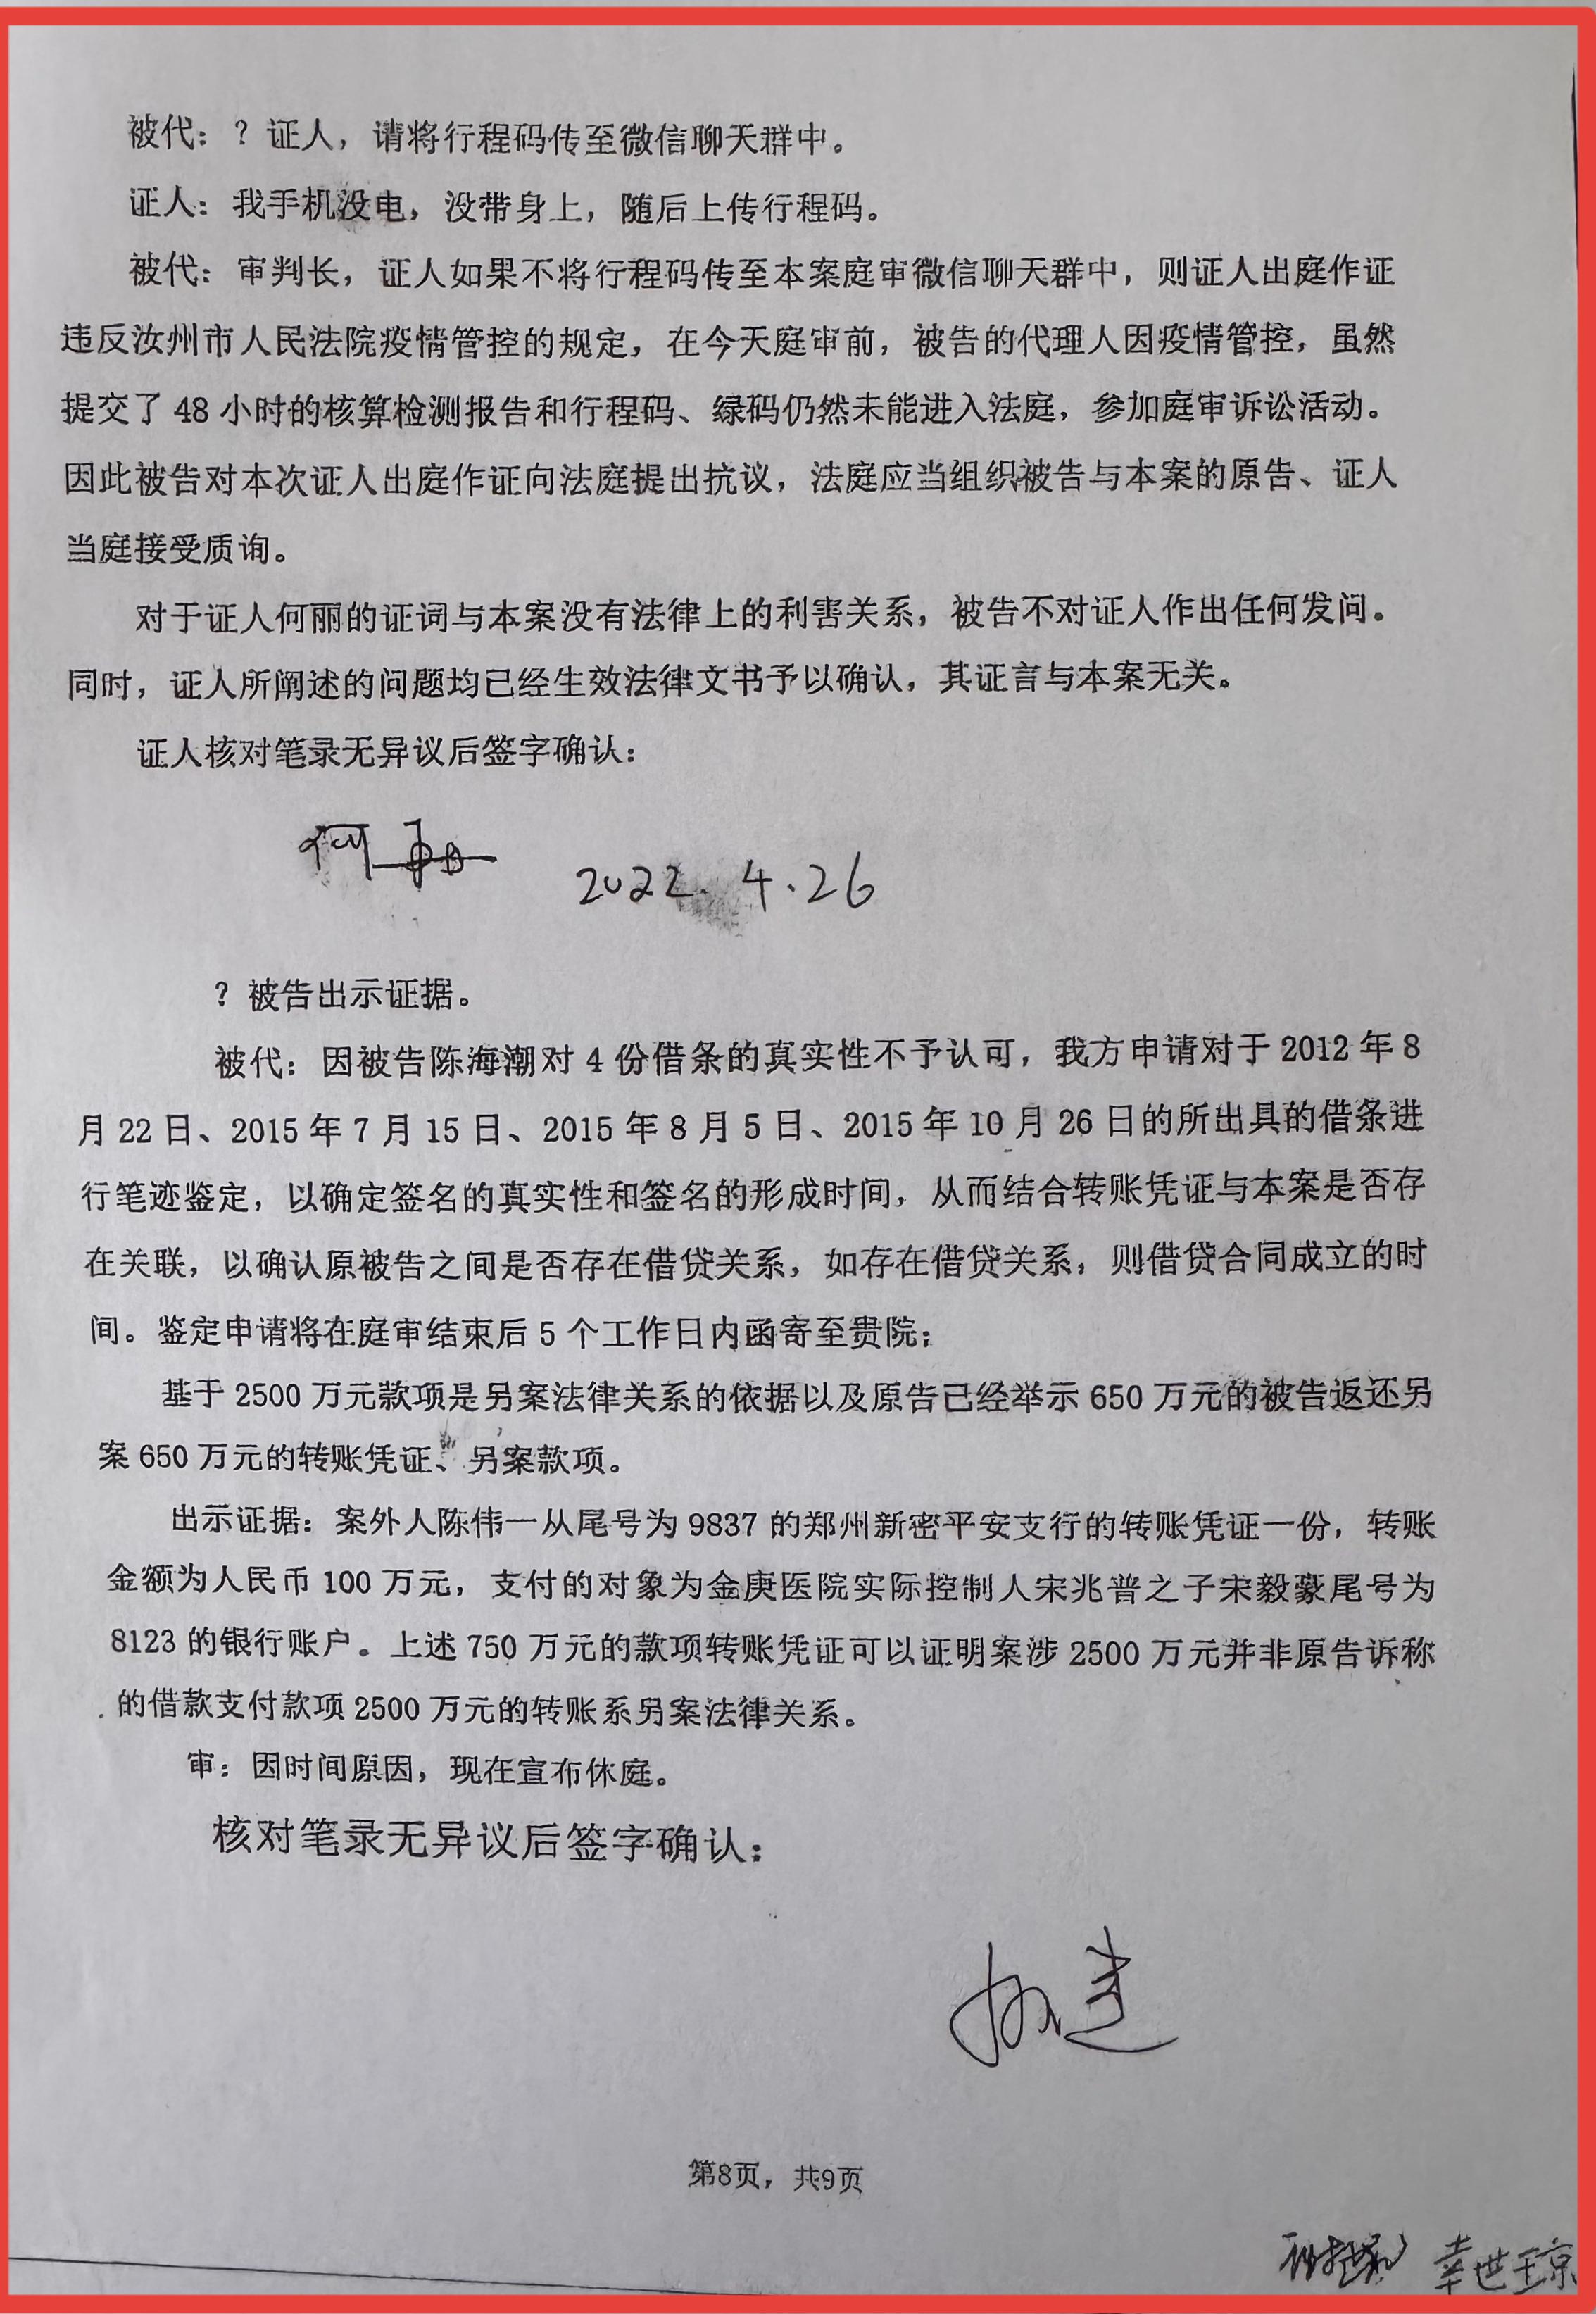 被代：？证人，请将行程码传至微信聊天群中。
证人：我手机没电，没带身上，随后上传行程码。
被代：审判长，证人如果不将行程码传至本案庭审微信聊天群中，则证人出庭作证
违反汝州市人民法院疫情管控的规定，在今天庭审前，被告的代理人因疫情管控，虽然
提交了 48 小时的核算检测报告和行程码、绿码仍然未能进入法庭，参加庭审诉讼活动。
因此被告对本次证人出庭作证向法庭提出抗议，法庭应当组织被告与本案的原告、证人
当庭接受质询。
对于证人何丽的证词与本案没有法律上的利害关系，被告不对证人作出任何发问。
同时，证人所阐述的问题均已经生效法律文书予以确认，其证言与本案无关。
证人核对笔录无异议后签字确认：
何丽 2022.4.26
？被告出示证据。
被代：因被告陈海潮对 4 份借条的真实性不予认可，我方申请对于 2012 年 8
月 22 日、2015 年 7 月 15 日、2015 年 8 月 5 日、2015 年 10 月 26 日的所出具的借条进
行笔迹鉴定，以确定签名的真实性和签名的形成时间，从而结合转账凭证与本案是否存
在关联，以确认原被告之间是否存在借贷关系，如存在借贷关系，则借贷合同成立的时
间。鉴定申请将在庭审结束后 5 个工作日内函寄至贵院；
基于 2500 万元款项是另案法律关系的依据以及原告已经举示 650 万元的被告返还另
案 650 万元的转账凭证、另案款项。
出示证据：案外人陈伟一从尾号为 9837 的郑州新密平安支行的转账凭证一份，转账
金额为人民币 100 万元，支付的对象为金庚医院实际控制人宋兆普之子宋毅豪尾号为
8123 的银行账户。上述 750 万元的款项转账凭证可以证明案涉 2500 万元并非原告诉称
的借款支付款项 2500 万元的转账系另案法律关系。
审：因时间原因，现在宣布休庭。
核对笔录无异议后签字确认：
第8页，共9页